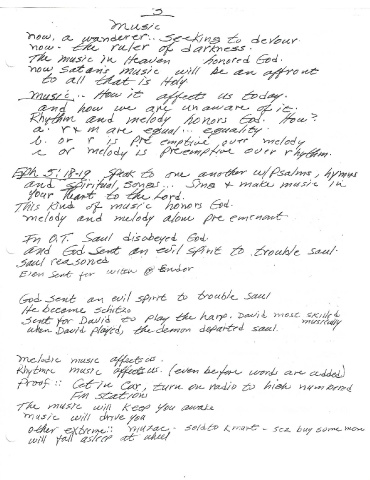 5
Music
now, a wanderer... seeking to devour
now - the ruler of darkness.
The music in Heaven honored God.
now Satan's music will be an affront
to all that is Holy
Music... How it affects us today.
and how we are unaware of it.
Rhythm and melody honors God. How?
a. r & m are equal... equality.
b. or r is preemptive over melody
c or melody is preemptive over rhythm.
Eph 5:18-19. Speak to one another w/Psalms, hymns
and spiritual songs... Sing & make music in
your heart to the Lord.
This kind of music honors God.
melody and melody alone preeminent.
In O.T. Saul disobeyed God.
and God sent an evil spirit to trouble Saul.
Saul reasoned
Even sent for witch @ Endor
God sent an evil spirit to trouble Saul
He become schitzo
Sent for David to play the harp. David most skilled
musically
when David played, the demon departed Saul.
Melodic music affects us.
Rhythmic music affects us. (even before words are added)
Proof :: Get in Car, turn on radio to high numbered
Fm stations
The music will keep you awake
music will drive you
other extreme:: muzac - sold to Kmart - sez buy some more
will fall asleep at wheel